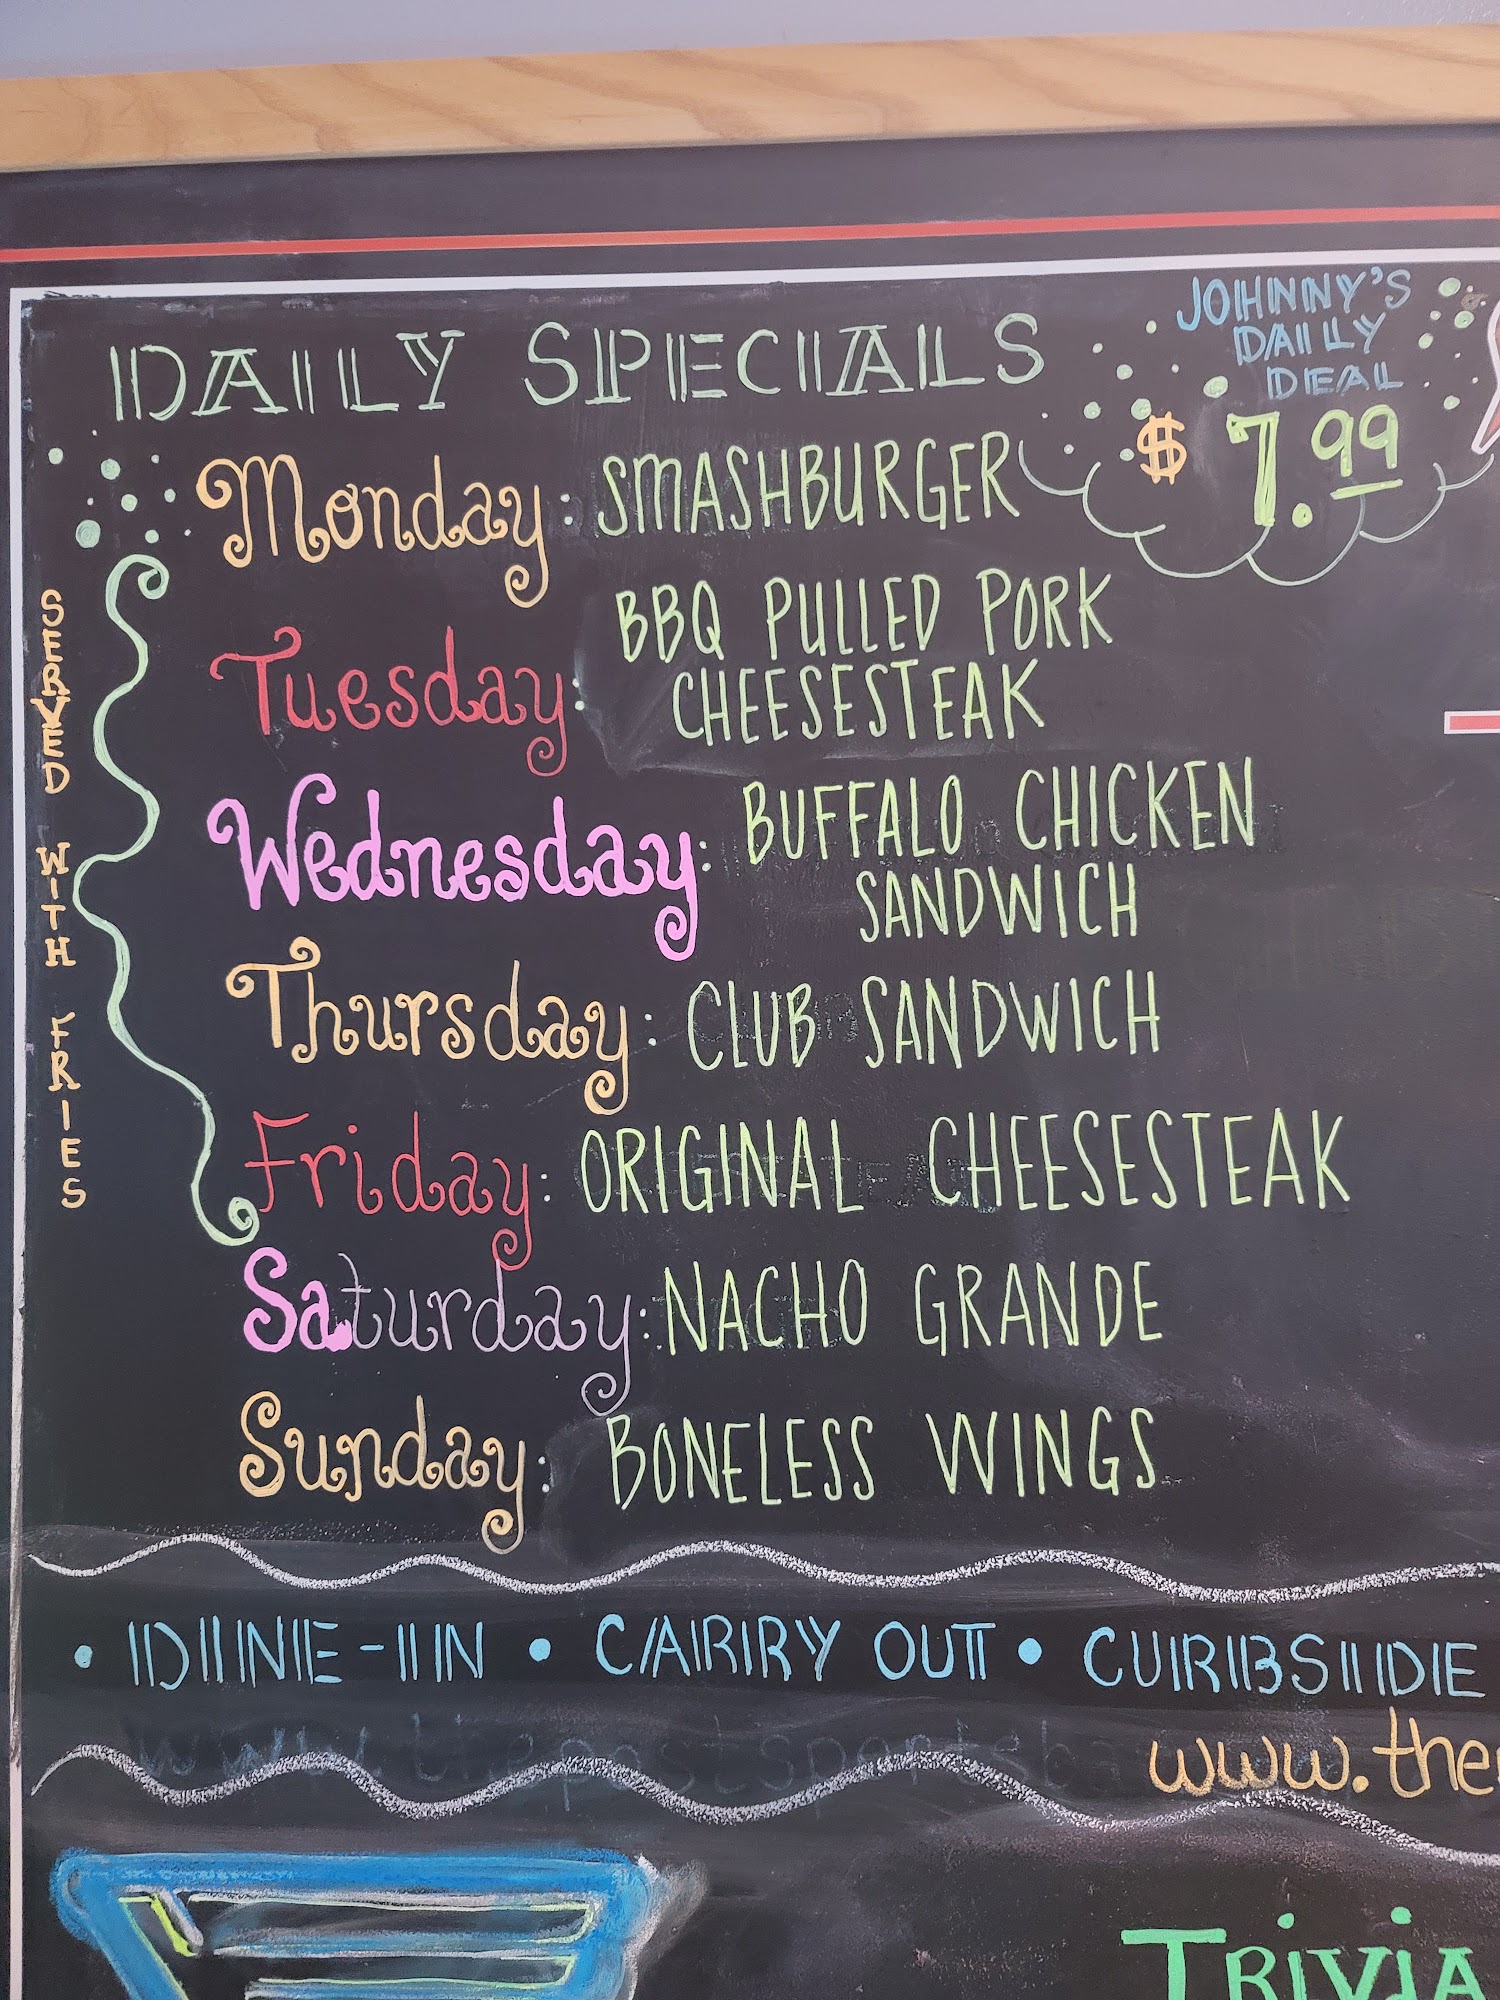 DAILY SPECIALS
JOHNNY'S
DAILY
DEAL
$7.99
Monday: SMASHBURGER
Tuesday: BBQ PULLED PORK
CHEESESTEAK
Wednesday: BUFFALO CHICKEN
SANDWICH
Thursday: CLUB SANDWICH
Friday: ORIGINAL CHEESESTEAK
Saturday: NACHO GRANDE
Sunday: BONELESS WINGS
SERVED WITH FRIES
• DINE-IN • CARRY OUT • CURBSIDE
www.the
TRIVIA